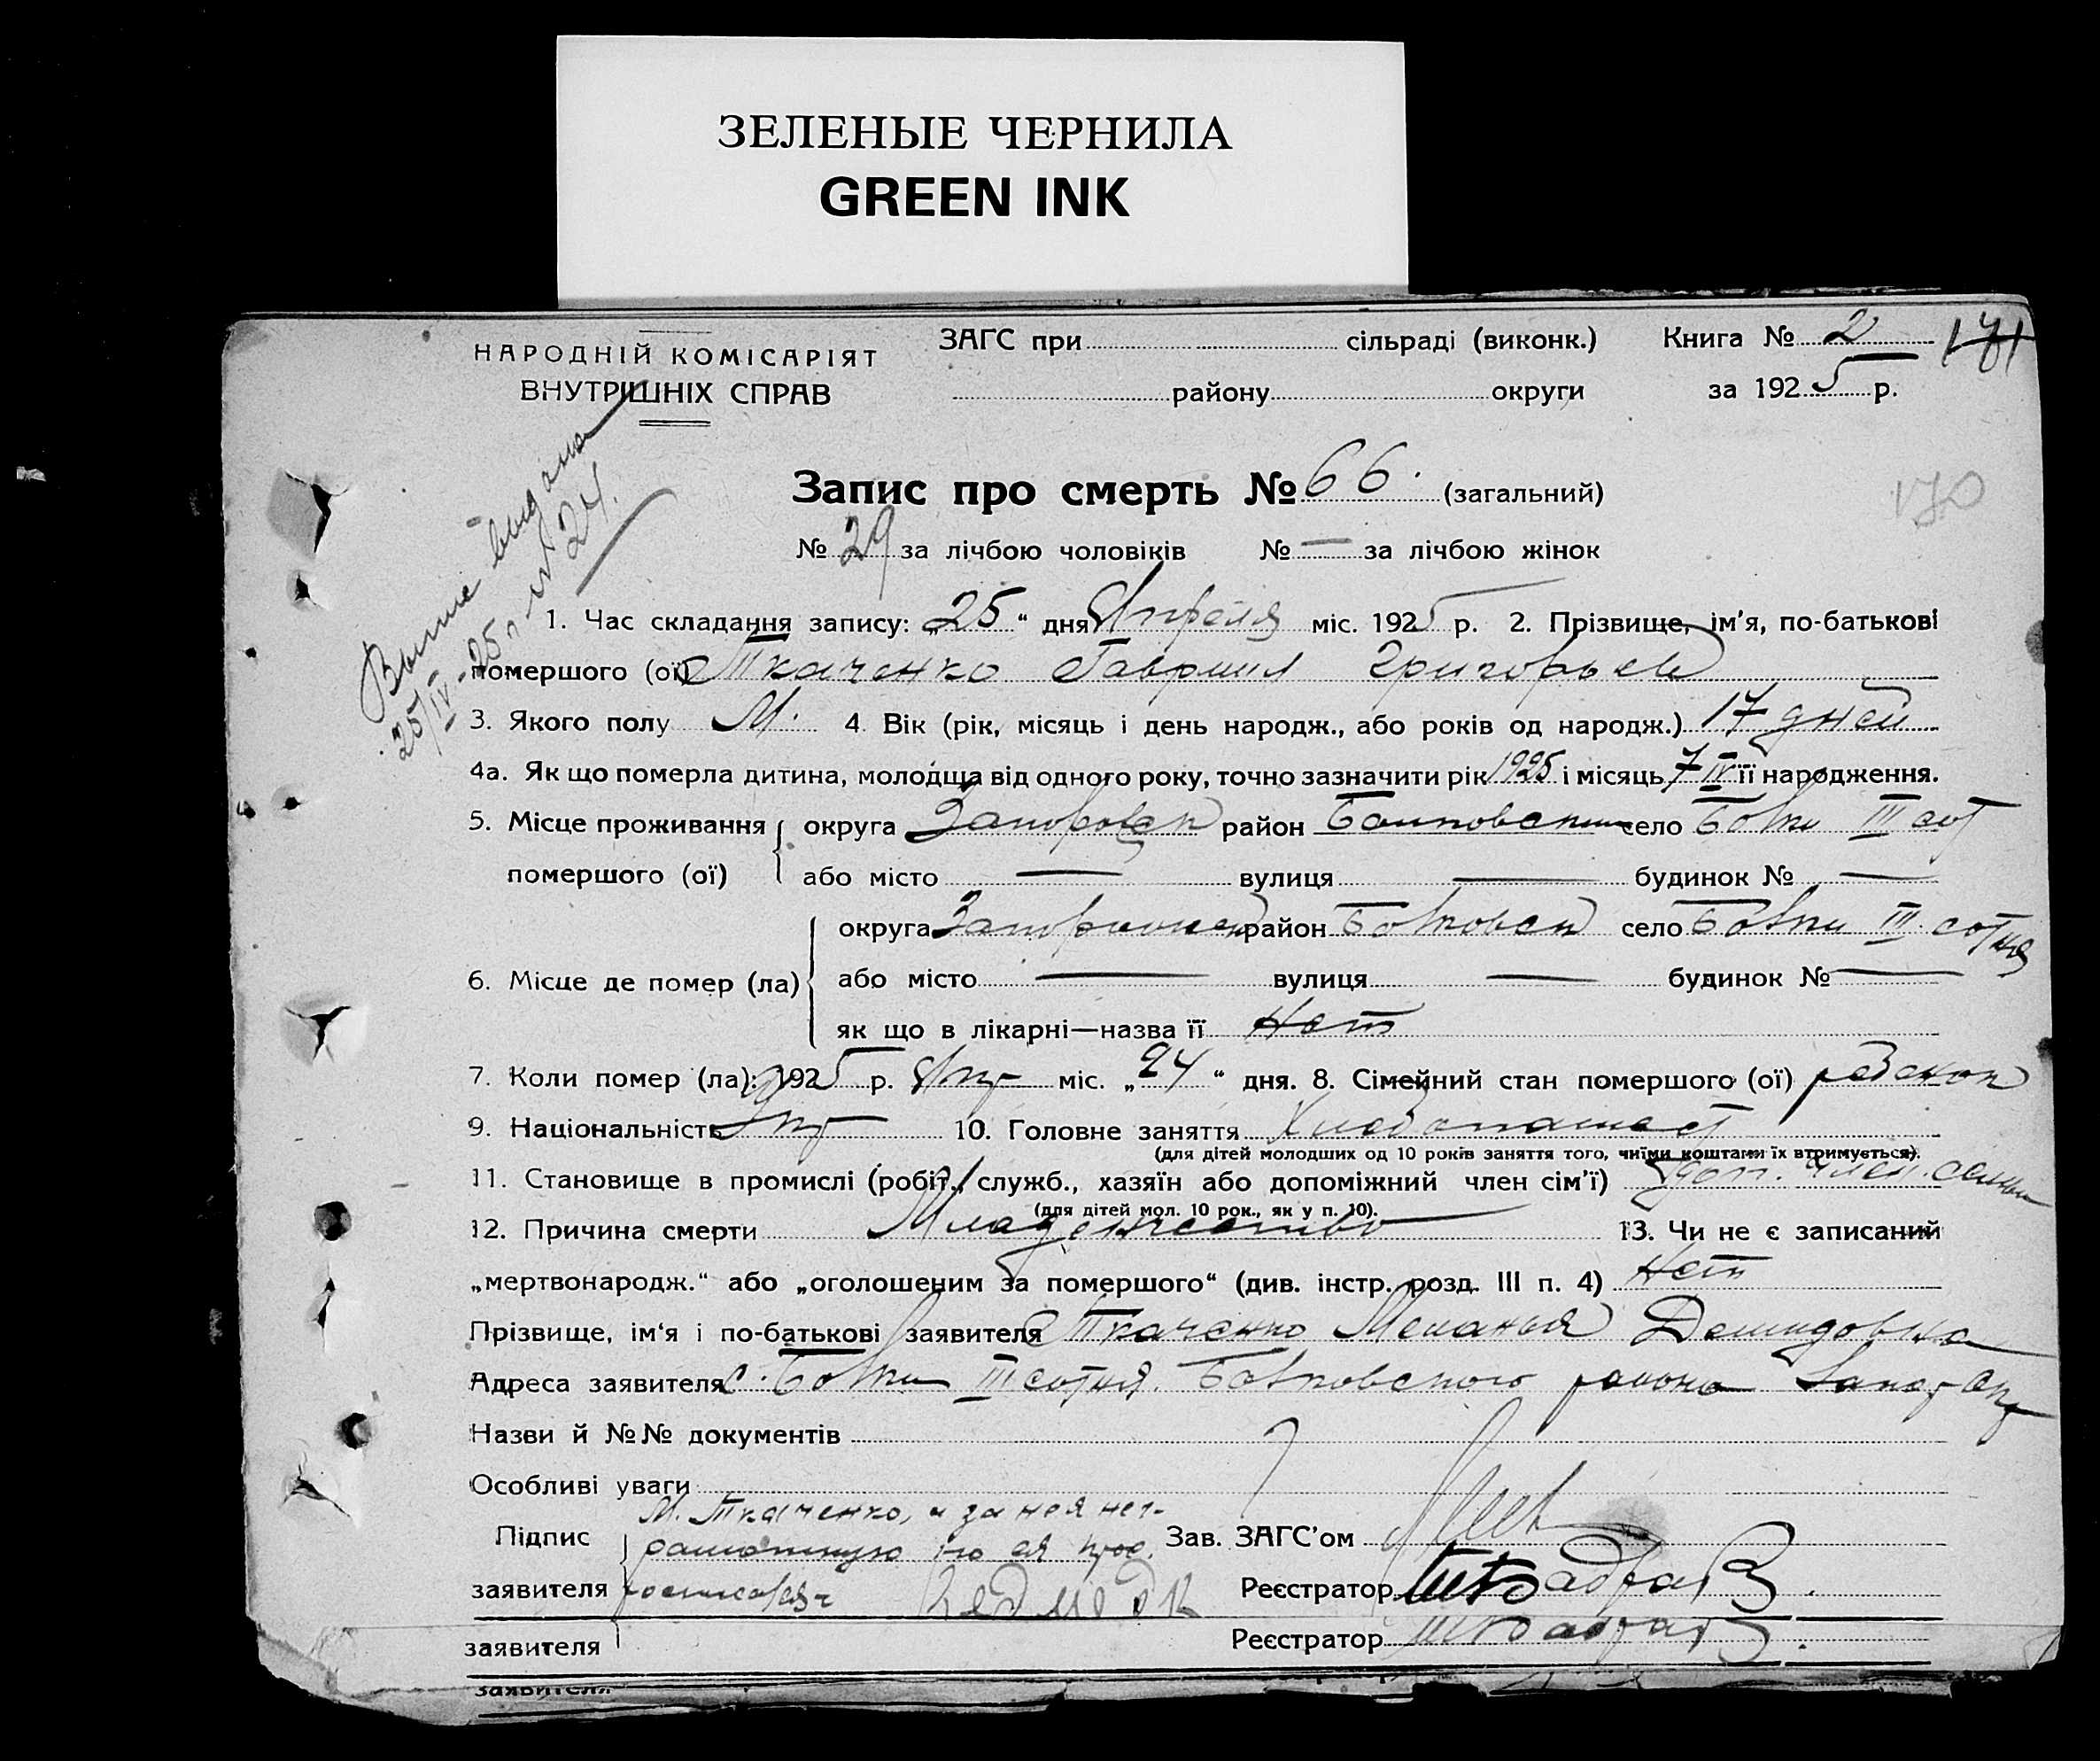 ЗЕЛЕНЫЕ ЧЕРНИЛА
GREEN INK
НАРОДНІЙ КОМІСАРІЯТ
ВНУТРІШНІХ СПРАВ
ЗАГС при сільраді (виконк.) Книга № 2 171
району округи за 1925 р.
Выпис выдана
25/IV-25 г. № 24.
Запис про смерть № 66. (загальний)
170
№ 29 за лічбою чоловіків № — за лічбою жінок
1. Час складання запису: „25“ дня Апреля міс. 1925 р. 2. Прізвище, ім'я, по-батькові
помершого (ої) Ткаченко Гавриил Григорьев
3. Якого полу М. 4. Вік (рік, місяць і день народж., або років од народж.) 17 дней
4а. Як що померла дитина, молодща від одного року, точно зазначити рік 1925 і місяць 7 IV її народження.
5. Місце проживання округа район село III сот
помершого (ої) або місто — вулиця — будинок № —
округа район село III сотня
6. Місце де помер (ла) або місто — вулиця — будинок № —
як що в лікарні—назва її Нет
7. Коли помер (ла): 1925 р. Апр міс. „24“ дня. 8. Сімейний стан помершого (ої)
9. Національність Укр 10. Головне заняття Хлебопашест
(для дітей молодших од 10 років заняття того, чиїми коштами їх втримується).
11. Становище в промислі (робіт., служб., хазяїн або допоміжний член сім'ї) доп. член. семьи
(для дітей мол. 10 рок., як у п. 10).
12. Причина смерти Младенчество 13. Чи не є записаний
„мертвонародж.“ або „оголошеним за помершого“ (див. інстр. розд. III п. 4) Нет
Прізвище, ім'я і по-батькові заявителя Ткаченко Меланья Демидовна
Адреса заявителя с. III сотня района
Назви й №№ документів
Особливі уваги
М. Ткаченко, а за нея неграмотную по ея прос.
Підпис Зав. ЗАГС'ом
заявителя Реєстратор
заявителя Реєстратор
заявителя